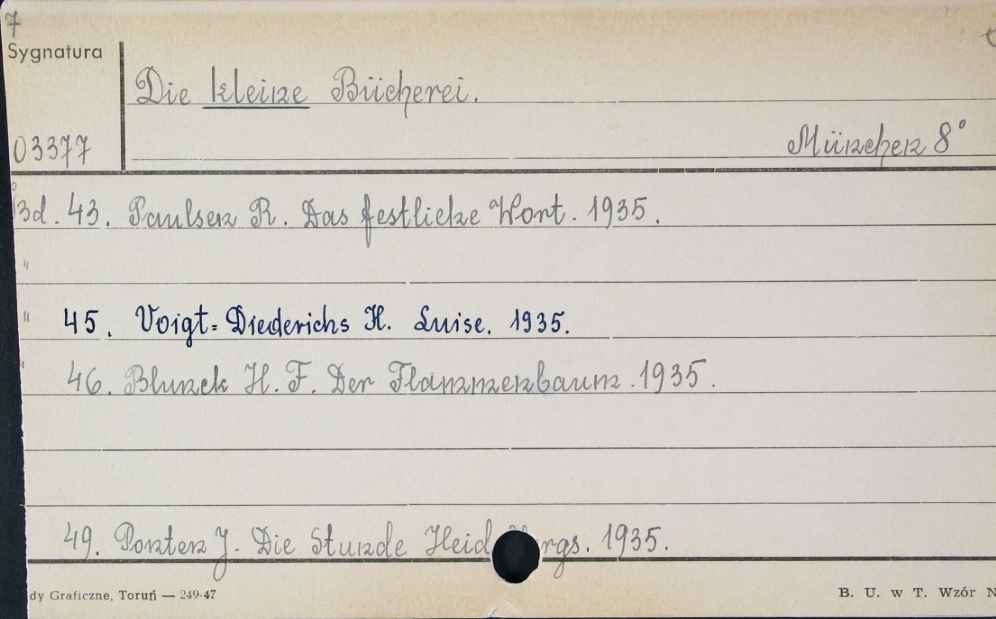 7
Sygnatura
Die kleine Bücherei.
03377
München 8°
Bd. 43. Paulsen R. Das festliche Wort. 1935.
"
" 45. Voigt=Diederichs H. Luise. 1935.
" 46. Blunck H. F. Der Flammenbaum. 1935.
49. Ponten J. Die Stunde Heid rgs. 1935.
dy Graficzne, Toruń — 249-47
B. U. w T. Wzór N